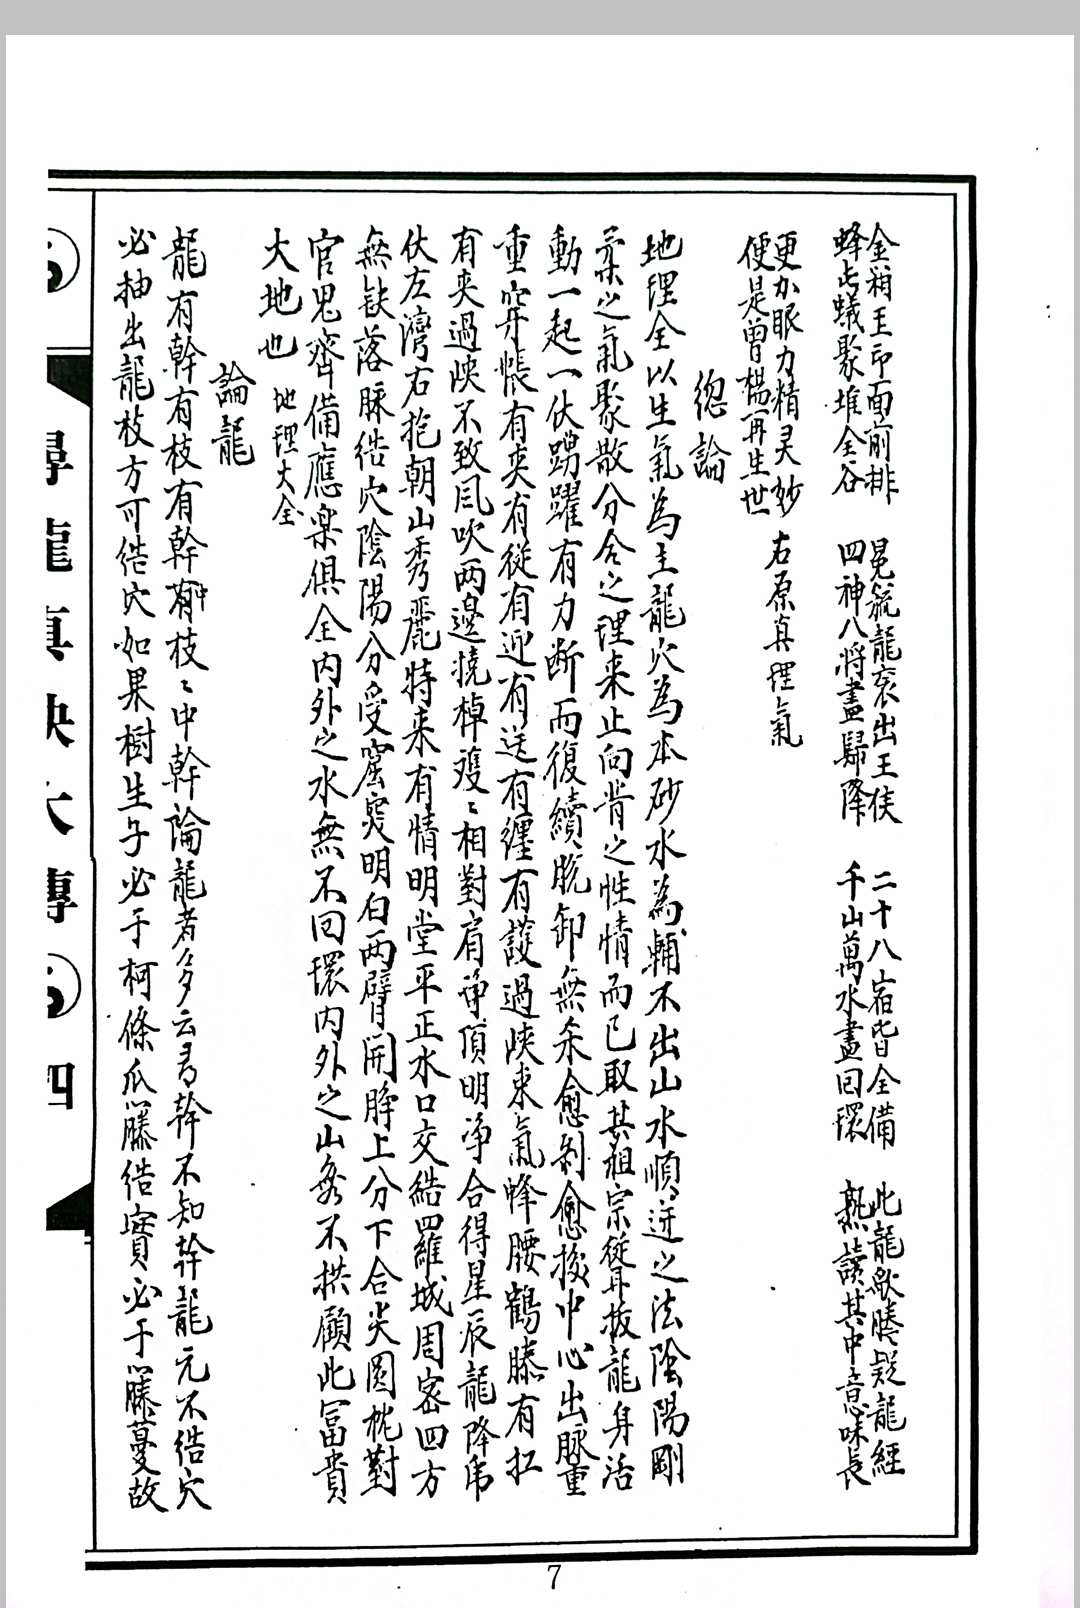 金箱玉印面前排　冕旒龍袞出王侯　二十八宿皆全備　此龍欲勝疑龍經
蜂屯蟻聚堆全谷　四神八將盡歸降　千山萬水盡回環　熟讀其中意味長
更加眼力精灵妙
便是曾楊再生世　右原真理氣
總論
地理全以生氣為主龍穴為本砂水為輔不出山水順逆之法陰陽剛
柔之氣聚散分合之理来止向背之性情而已取其祖宗聳拔龍身活
動一起一伏踴躍有力断而復續脫卸無杀愈剝愈換中心出脉重
重穿帳有夾有從有迎有送有纒有護過峽束氣蜂腰鶴膝有扛
有夾過峽不致風吹两邊橈棹雙〻相對肩淨頂明净合得星辰龍降虎
伏左灣右抱朝山秀麗特来有情明堂平正水口交結羅城周密四方
無缺落脉结穴陰陽分受窟突明白两臂開睜上分下合尖圓枕對
官鬼齊備應楽俱全内外之水無不回環内外之山無不拱顧此冨貴
大地也　地理大全
論龍
龍有幹有枝有幹中有枝〻中幹論龍者多云尋幹不知幹龍元不结穴
必抽出龍枝方可结穴如果樹生子必于柯條瓜藤结實必于藤蔓故
尋龍真訣大傳　四
7